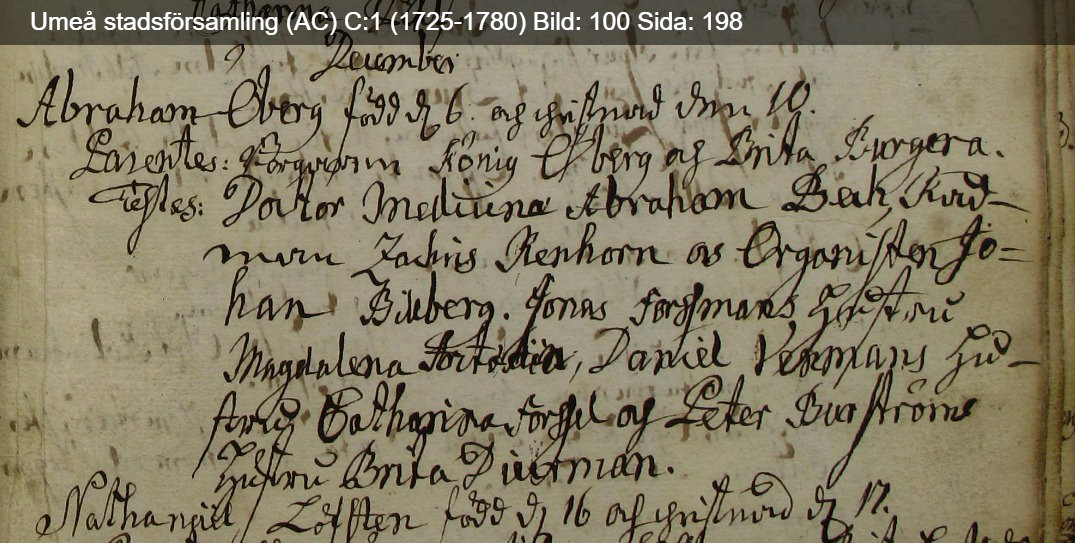 Umeå stadsförsamling (AC) C:1 (1725-1780) Bild: 100 Sida: 198
December
Abraham Öberg född d 6. och christnad den 10.
Parentes: Borgaren König Öberg och Brita Burgera.
Testes: Doctor Medicinæ Abraham Beck, Råd-
man Zachris Renhorn os Organisten Jo=
han Biuberg. Jonas Forssmans Hustru
Magdalena, Daniel Vekmans Hu-
stru Catharina Forssel och Peter Burströms
Hustru Brita Diurman.
Nathanael Löfsten född d 16 och christnad d 17.